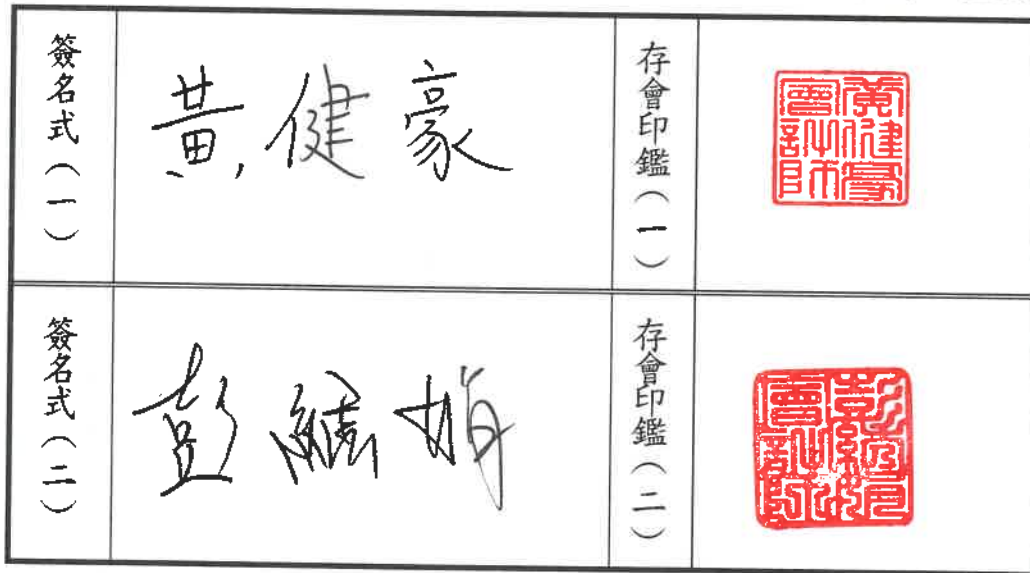 簽名式（一）
黃健豪
存會印鑑（一）
黃健豪會計師
簽名式（二）
彭 娟
存會印鑑（二）
彭 娟會計師